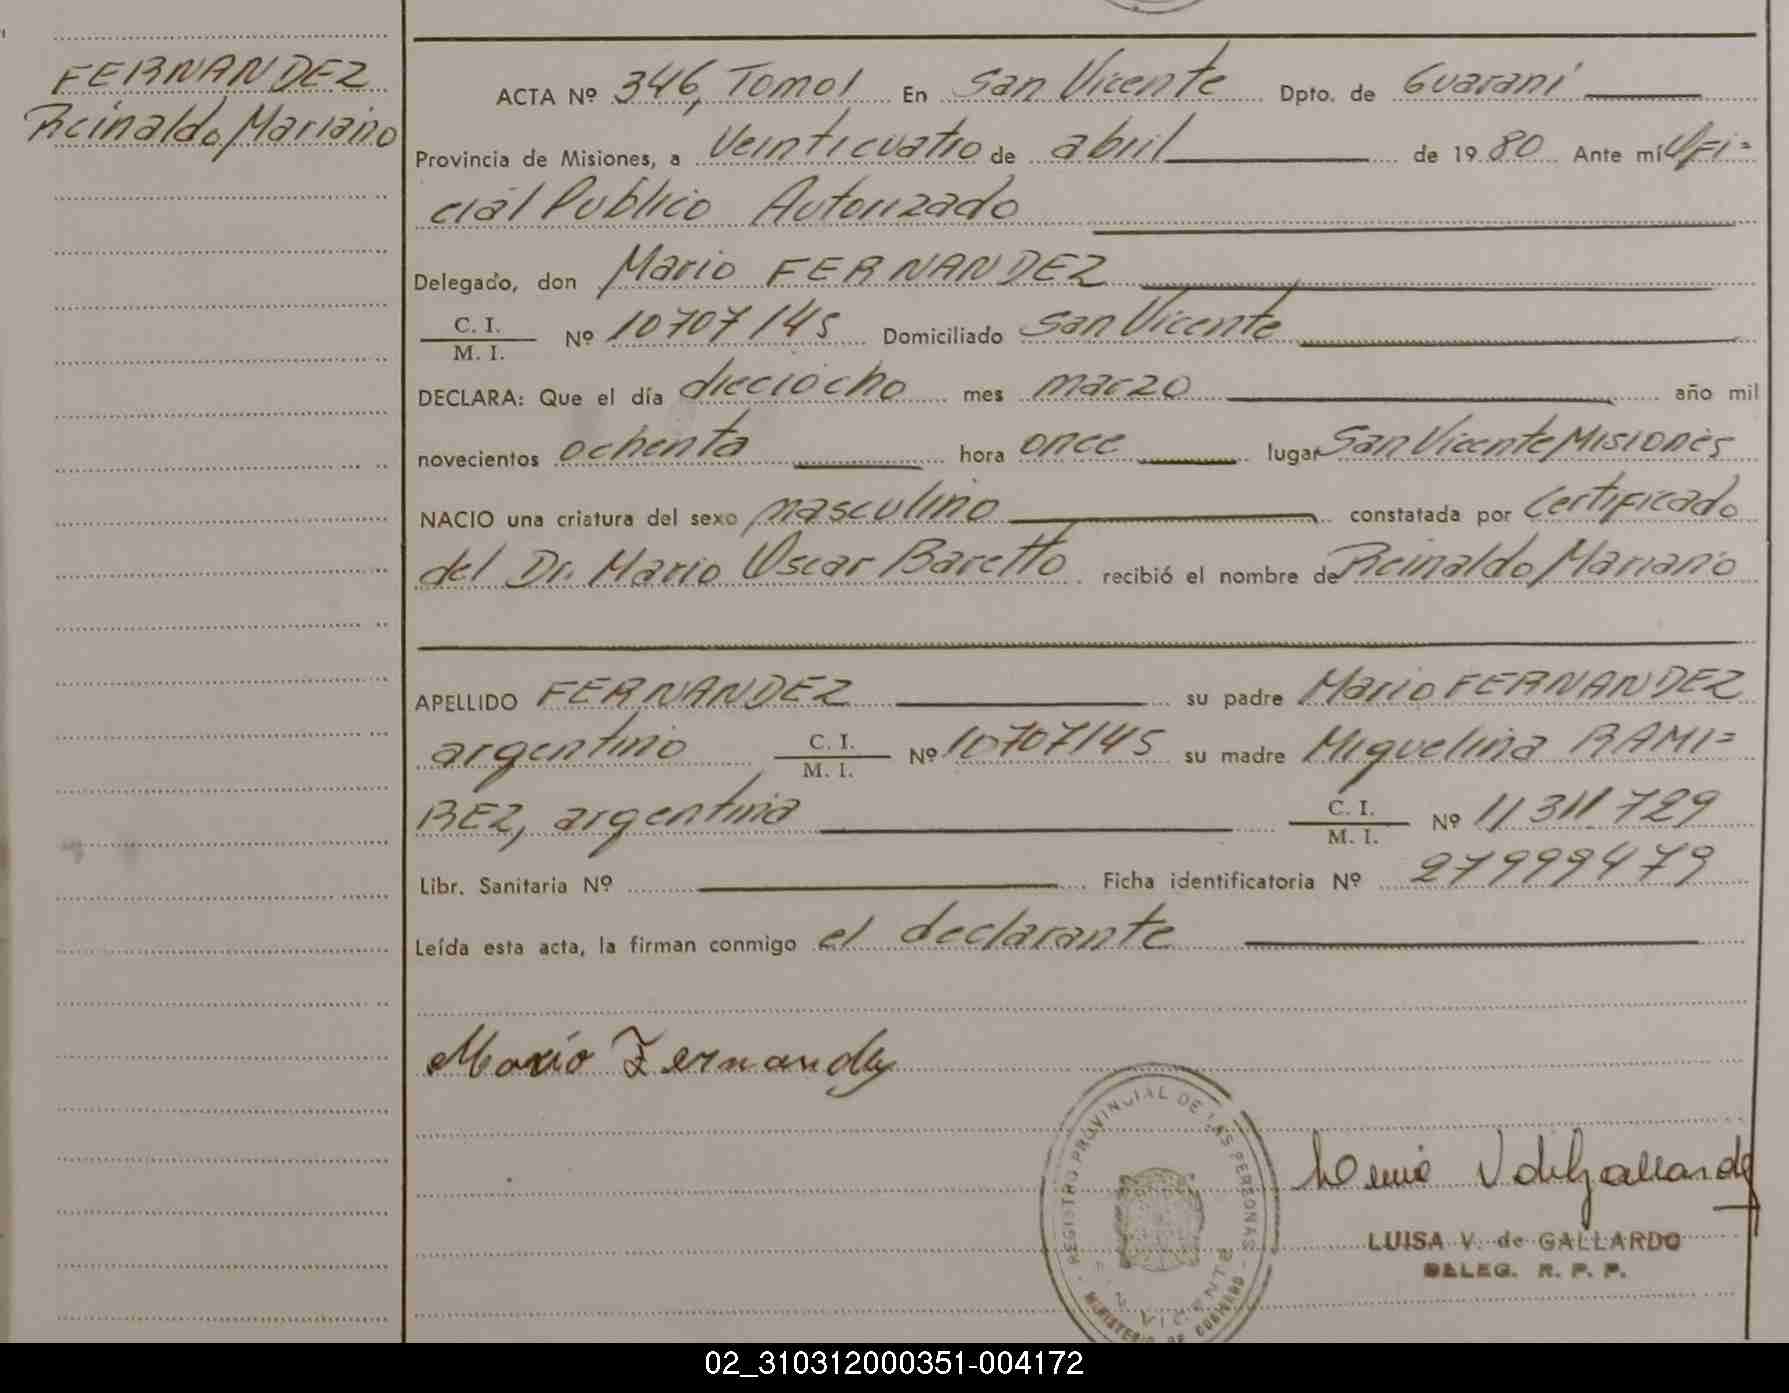 FERNANDEZ
Reinaldo Mariano
ACTA Nº 346, Tomo I En San Vicente Dpto. de Guaraní
Provincia de Misiones, a Veinticuatro de abril de 1980 Ante mí Ofi=
cial Público Autorizado
Delegado, don Mario FERNANDEZ
C. I.
M. I. Nº 10707145 Domiciliado San Vicente
DECLARA: Que el día dieciocho mes marzo año mil
novecientos ochenta hora once lugar San Vicente Misiones
NACIO una criatura del sexo masculino constatada por Certificado
del Dr. Mario Oscar Baretto recibió el nombre de Reinaldo Mariano
APELLIDO FERNANDEZ su padre Mario FERNANDEZ
argentino C. I. M. I. Nº 10707145 su madre Miguelina RAMI=
REZ, argentina C. I. M. I. Nº 11311729
Libr. Sanitaria Nº Ficha identificatoria Nº 27999479
Leída esta acta, la firman conmigo el declarante
Mario Fernandez
REGISTRO PROVINCIAL DE LAS PERSONAS
VICENTE
MINISTERIO DE GOBIERNO
LUISA V. de GALLARDO
DELEG. R. P. P.
02_310312000351-004172